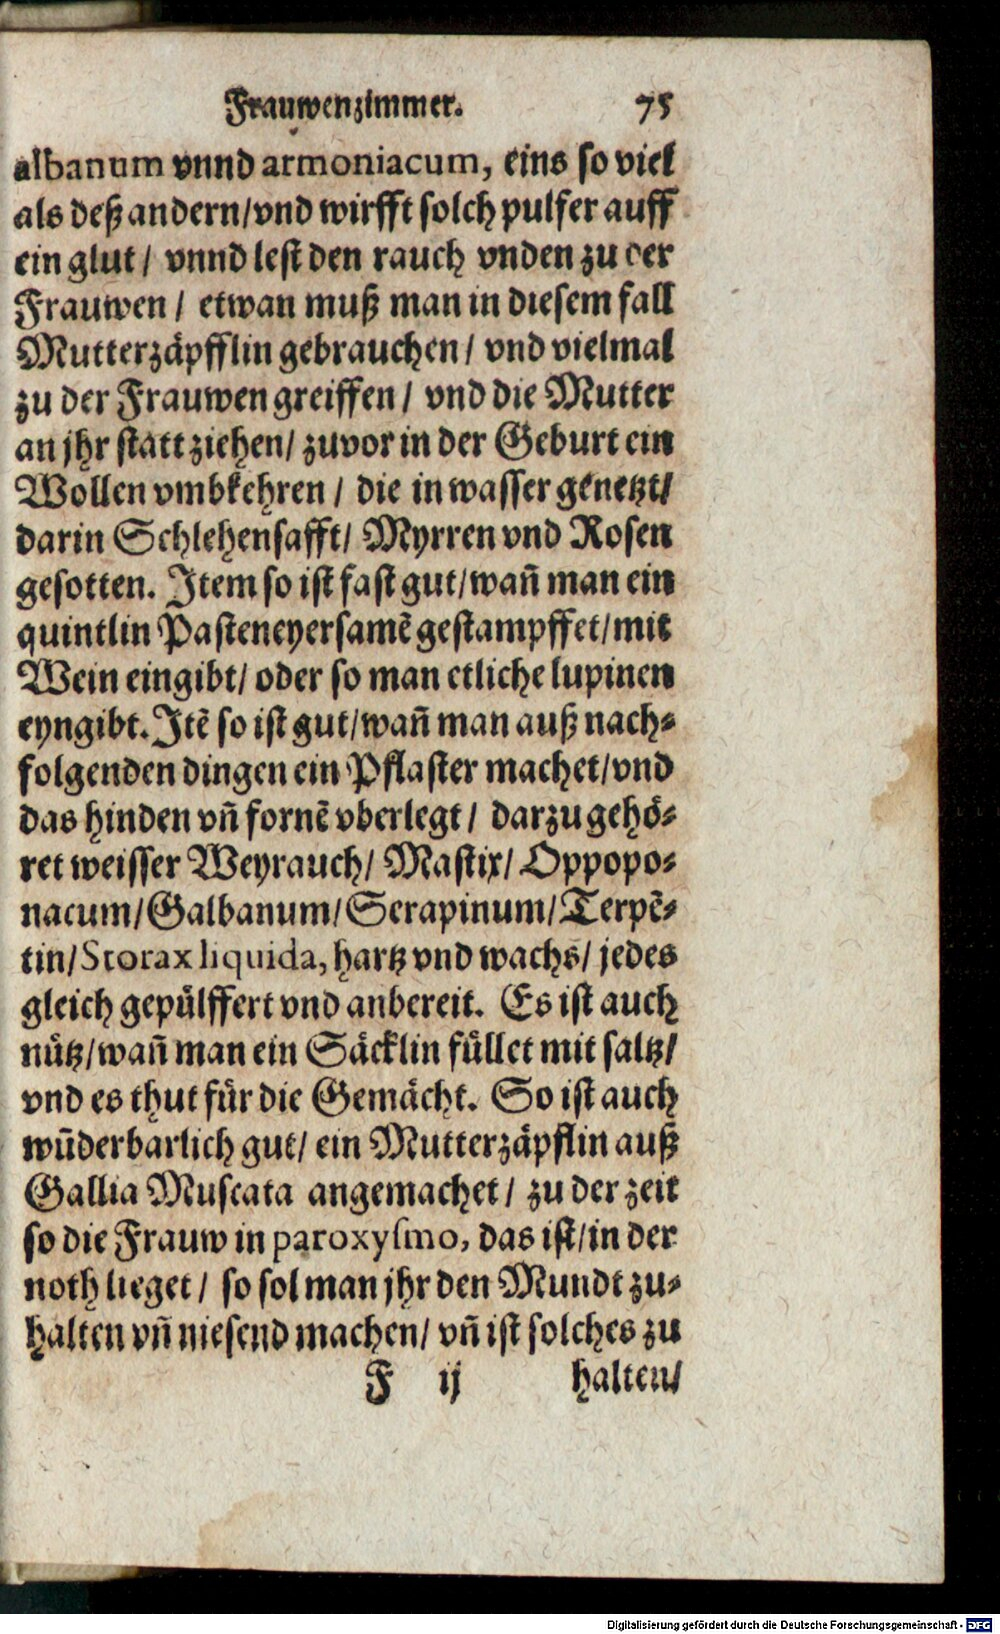 Frauwenzimmer. 75
albanum vnnd armoniacum, eins so viel
als deß andern/vnd wirfft solch pulfer auff
ein glut / vnnd lest den rauch vnden zu der
Frauwen / etwan muß man in diesem fall
Mutterzäpfflin gebrauchen / vnd vielmal
zu der Frauwen greiffen / vnd die Mutter
an jhr statt ziehen/ zuvor in der Geburt ein
Wollen vmbkehren / die in wasser genetzt/
darin Schlehensafft/ Myrren vnd Rosen
gesotten. Item so ist fast gut/wañ man ein
quintlin Pasteneyersamẽ gestampffet/mit
Wein eingibt/ oder so man etliche lupinen
eyngibt. Itẽ so ist gut/wañ man auß nach⸗
folgenden dingen ein Pflaster machet/vnd
das hinden vñ fornẽ vberlegt / darzu gehö⸗
ret weisser Weyrauch/ Mastix/ Oppopo⸗
nacum/Galbanum/Serapinum/Terpẽ⸗
tin/Storax liquida, hartz vnd wachs/ jedes
gleich gepülffert vnd anbereit. Es ist auch
nütz/wañ man ein Säcklin füllet mit saltz/
vnd es thut für die Gemächt. So ist auch
wũderbarlich gut/ ein Mutterzäpflin auß
Gallia Muscata angemachet / zu der zeit
so die Frauw in paroxysmo, das ist/in der
noth lieget / so sol man jhr den Mundt zu⸗
halten vñ niesend machen/ vñ ist solches zu
F ij halten/
Digitalisierung gefördert durch die Deutsche Forschungsgemeinschaft - DFG